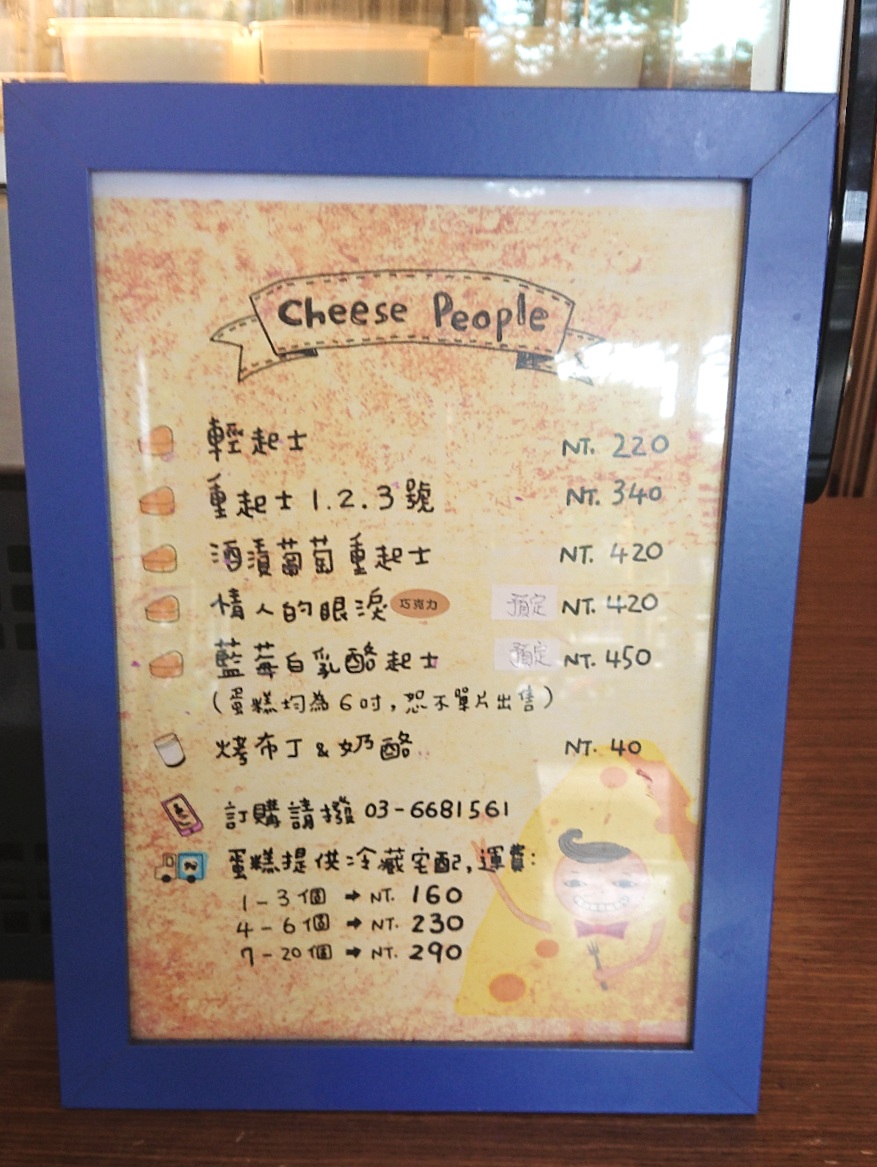 Cheese People
輕起士 NT. 220
重起士 1.2.3號 NT. 340
酒漬葡萄重起士 NT. 420
情人的眼淚 巧克力 預定 NT. 420
藍莓白乳酪起士 預定 NT. 450
(蛋糕均為6吋,恕不單片出售)
烤布丁&奶酪 NT. 40
訂購請撥 03-6681561
蛋糕提供冷藏宅配,運費:
1-3個 → NT. 160
4-6個 → NT. 230
7-20個 → NT. 290